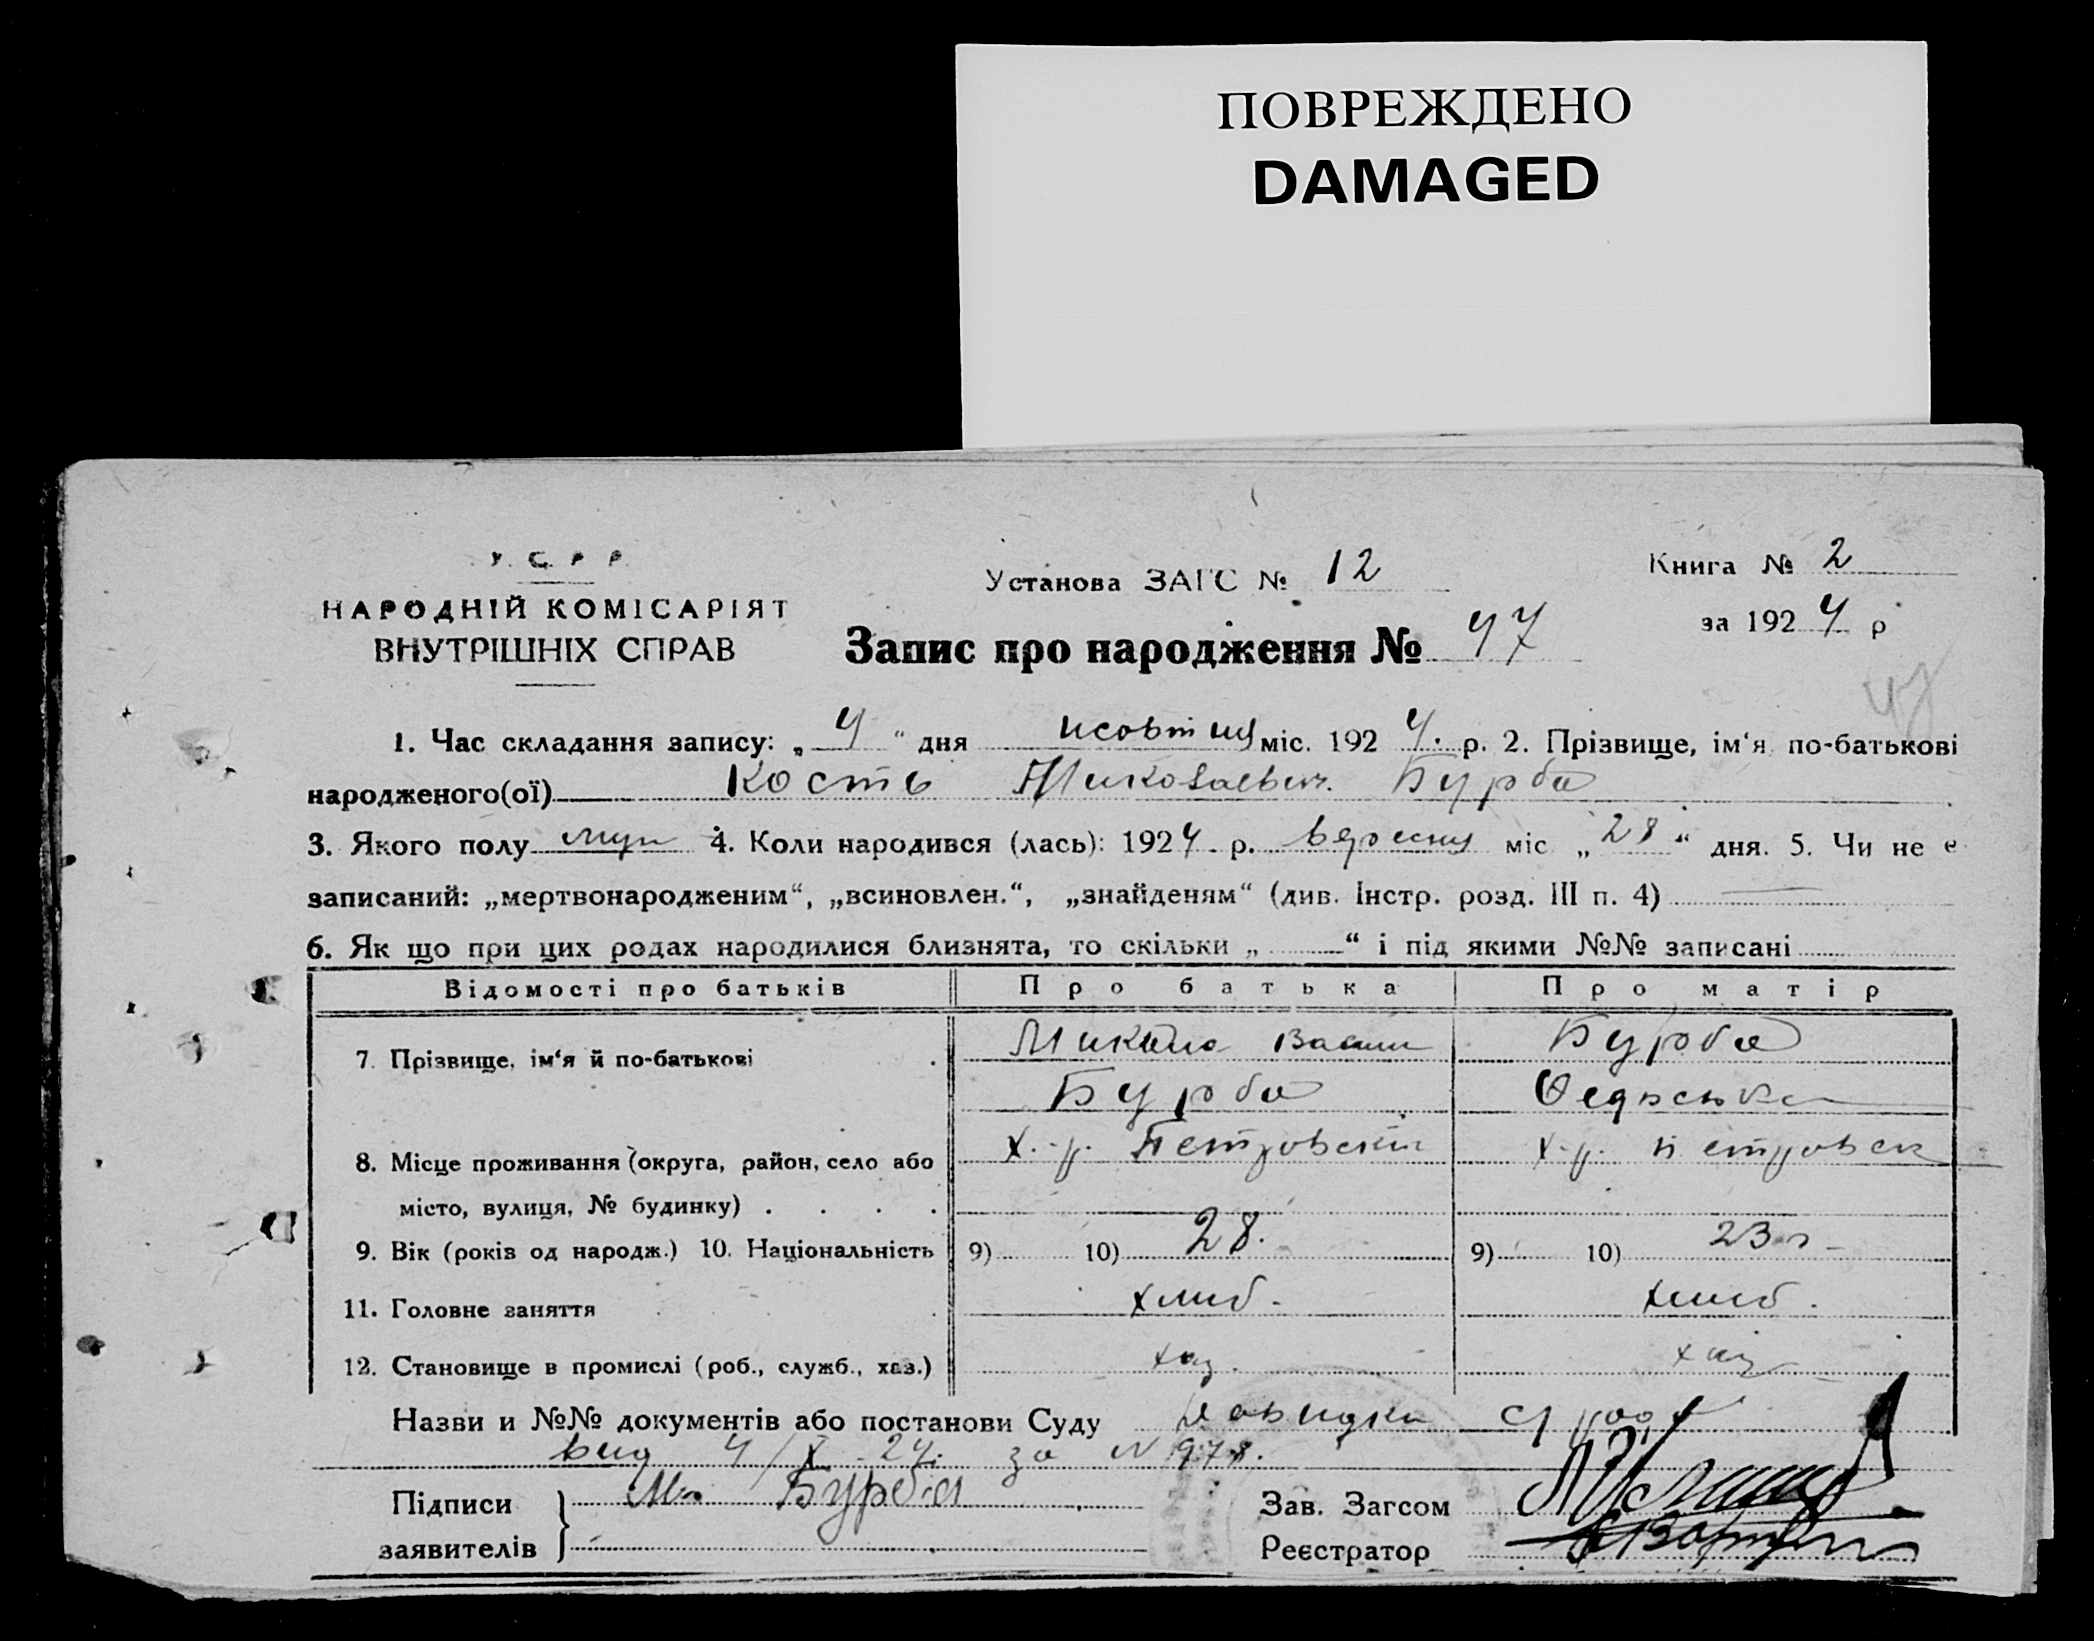 ПОВРЕЖДЕНО
DAMAGED
У. С. Р. Р.
НАРОДНІЙ КОМІСАРІЯТ
ВНУТРІШНІХ СПРАВ
Установа ЗАГС № 12
Книга № 2
за 1924 р
Запис про народження № 47
47
1. Час складання запису: „ 4 “ дня жовтня міс. 192 4. р. 2. Прізвище, ім‘я по-батькові
народженого(ої) Кость Миколаевич. Бурба
3. Якого полу муж 4. Коли народився (лась): 1924 р. вересня міс „ 28 “ дня. 5. Чи не є
записаний: „мертвонародженим“, „всиновлен.“, „знайденям“ (див. Інстр. розд. III п. 4)
6. Як що при цих родах народилися близнята, то скільки „ “ і під якими №№ записані
Відомості про батьків Про батька Про матір
7. Прізвище, ім‘я й по-батькові Микола Васил Бурба
Бурба Федоська
8. Місце проживання (округа, район, село або х. р. Петровский х. р. Петровск
місто, вулиця, № будинку) . . . .
9. Вік (років од народж.) 10. Національність 9) 10) 28. 9) 10) 23
11. Головне заняття хлиб. хлиб.
12. Становище в промислі (роб., служб., хаз.) хаз. хаз
Назви и №№ документів або постанови Суду Довидка
вид 4/X 24. за N 978.
Підписи М. Бурба Зав. Загсом
заявителів Реєстратор